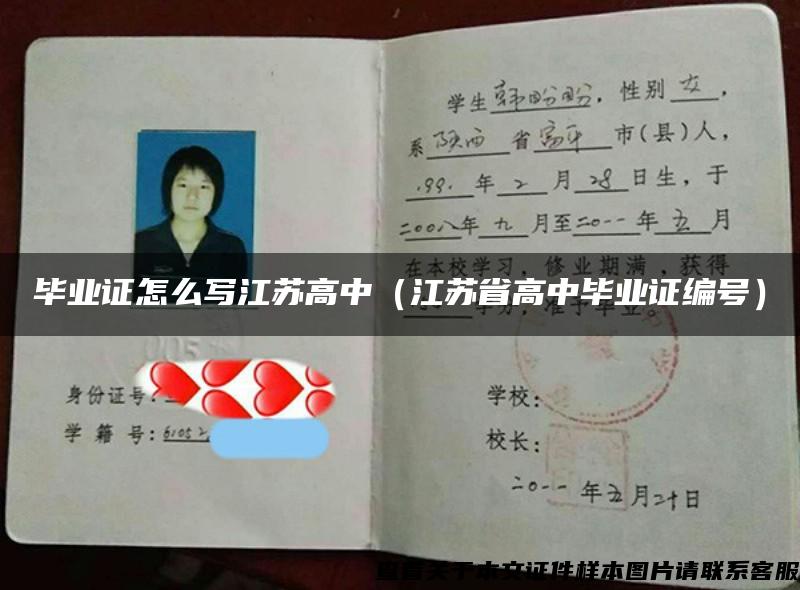 学生韩盼盼，性别女，
系陕西省富平市(县)人，
1991年2月28日生，于
二00八年九月至二0一一年五月
在本校学习，修业期满，获得
学分，准予毕业。
毕业证怎么写江苏高中（江苏省高中毕业证编号）
005
身份证号：
学籍号：61052
学校：
校长：
二0一一年五月二十日
查看关于本文证件样本图片请联系客服